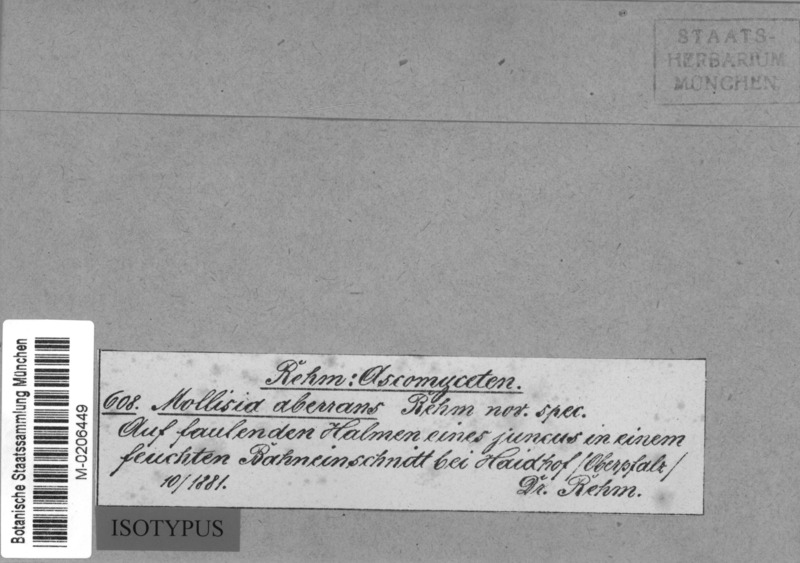 STAATS-
HERBARIUM
MÜNCHEN
Rehm: Ascomyceten.
608. Mollisia aberrans Rehm nov. spec.
Auf faulenden Halmen eines Juncus in einem
feuchten Bahneinschnitt bei Haidhof /Oberpfalz/
10/1881. Dr. Rehm.
ISOTYPUS
Botanische Staatssammlung München
M-0206449